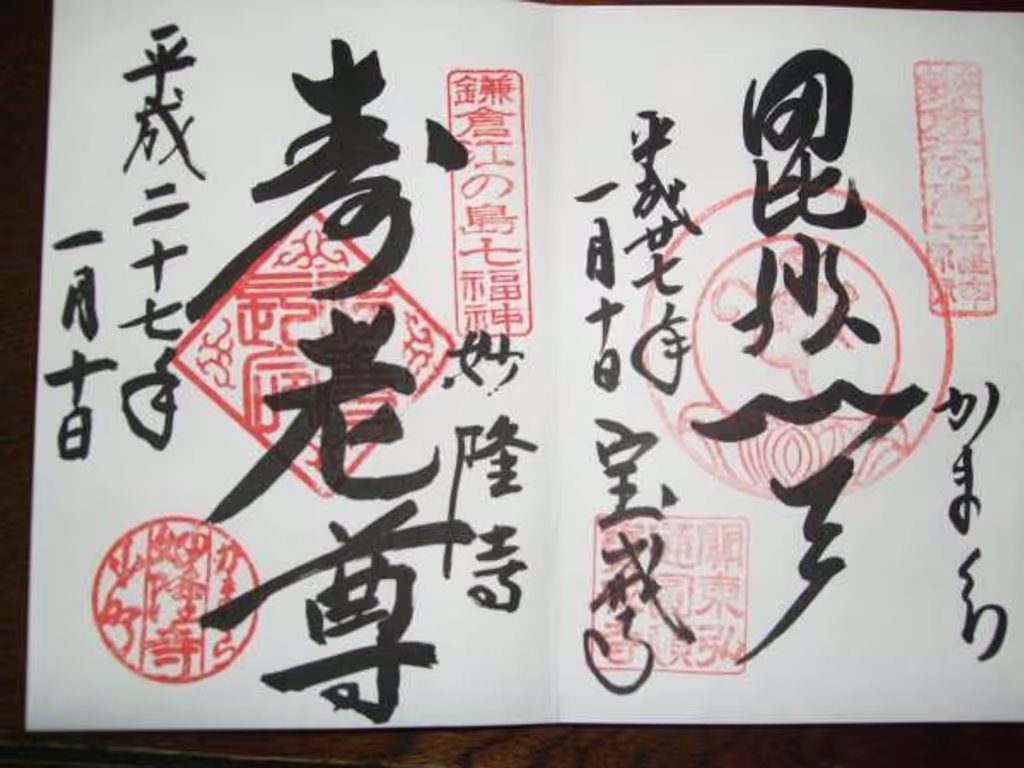 かまくら
毘沙門天
平成廿七年
一月十日
宝戒寺
鎌倉江の島七福神
妙隆寺
寿老尊
平成二十七年
一月十日
妙隆寺